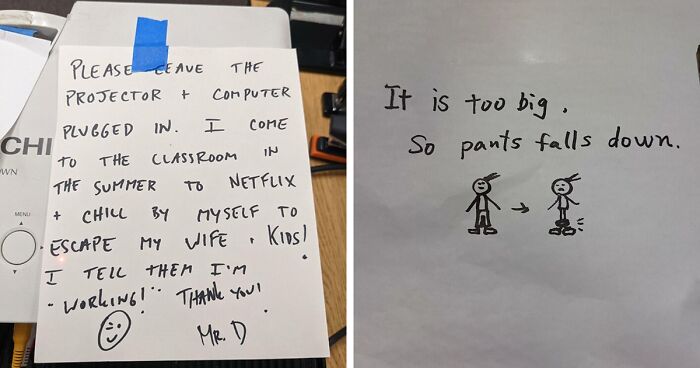 PLEASE LEAVE THE
PROJECTOR + COMPUTER
PLUGGED IN. I COME
TO THE CLASSROOM IN
THE SUMMER TO NETFLIX
+ CHILL BY MYSELF TO
ESCAPE MY WIFE + KIDS!
I TELL THEM I'M
"WORKING!" THANK YOU!
MR. D
CHI
WN
MENU
It is too big.
So pants falls down.